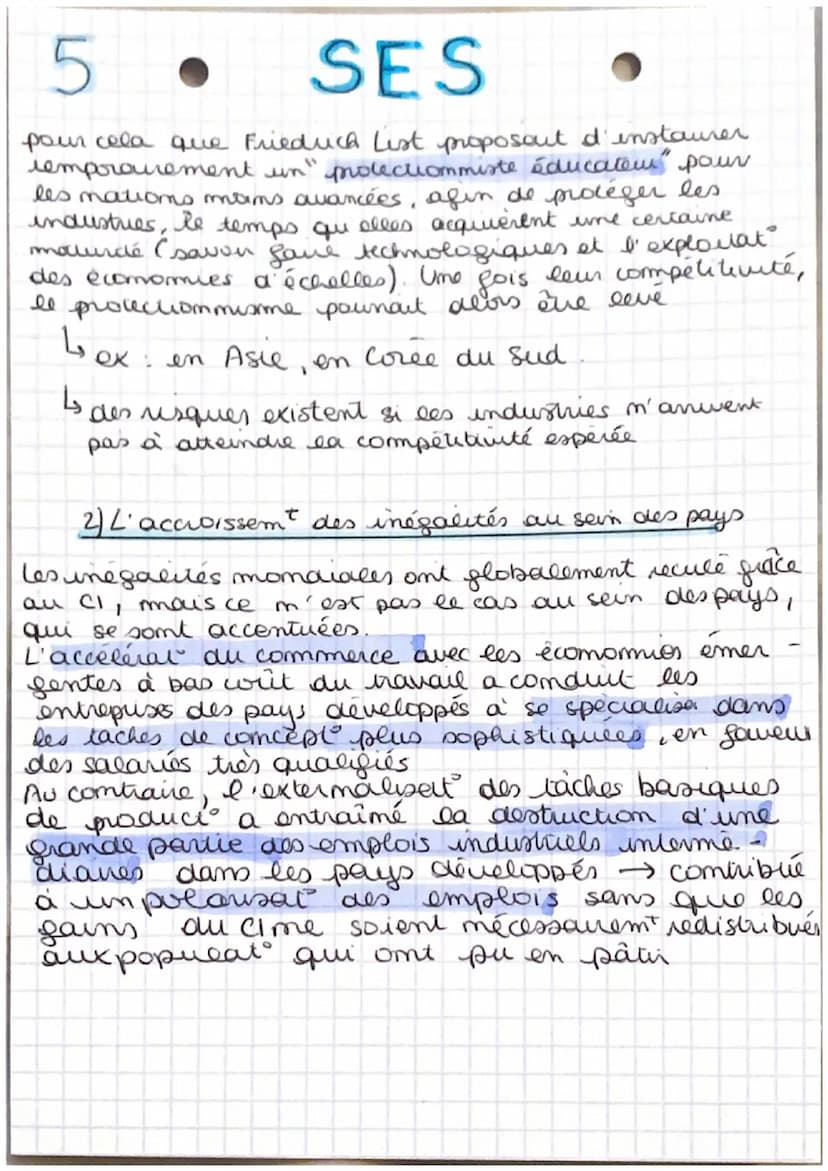 5 SES
pour cela que Friedrich List proposait d'instaurer
temporairement un "protectionnisme éducateur" pour
les nations moins avancées, afin de protéger les
industries, le temps qu'elles acquièrent une certaine
maturité (savoir faire technologiques et l'exploitat°
des économies d'échelles). Une fois leur compétitivité,
le protectionnisme pourrait alors être levé
↳ ex : en Asie, en Corée du Sud.
↳ des risques existent si les industries n'arrivent
pas à atteindre la compétitivité espérée
2) L'accroissemt des inégalités au sein des pays
Les inégalités mondiales ont globalement reculé grâce
au CI, mais ce n'est pas le cas au sein des pays,
qui se sont accentuées.
L'accélérat° du commerce avec les économies émer-
gentes à bas coût du travail a conduit les
entreprises des pays développés à se spécialiser dans
les tâches de concept° plus sophistiquées, en faveur
des salariés très qualifiés
Au contraire, l'externalisat° des tâches basiques
de product° a entraîné la destruction d'une
grande partie des emplois industriels intermé-
diaires dans les pays développés → contribué
à un polarisat° des emplois sans que les
gains du CI ne soient nécessairemt redistribués
aux populat° qui ont pu en pâtir